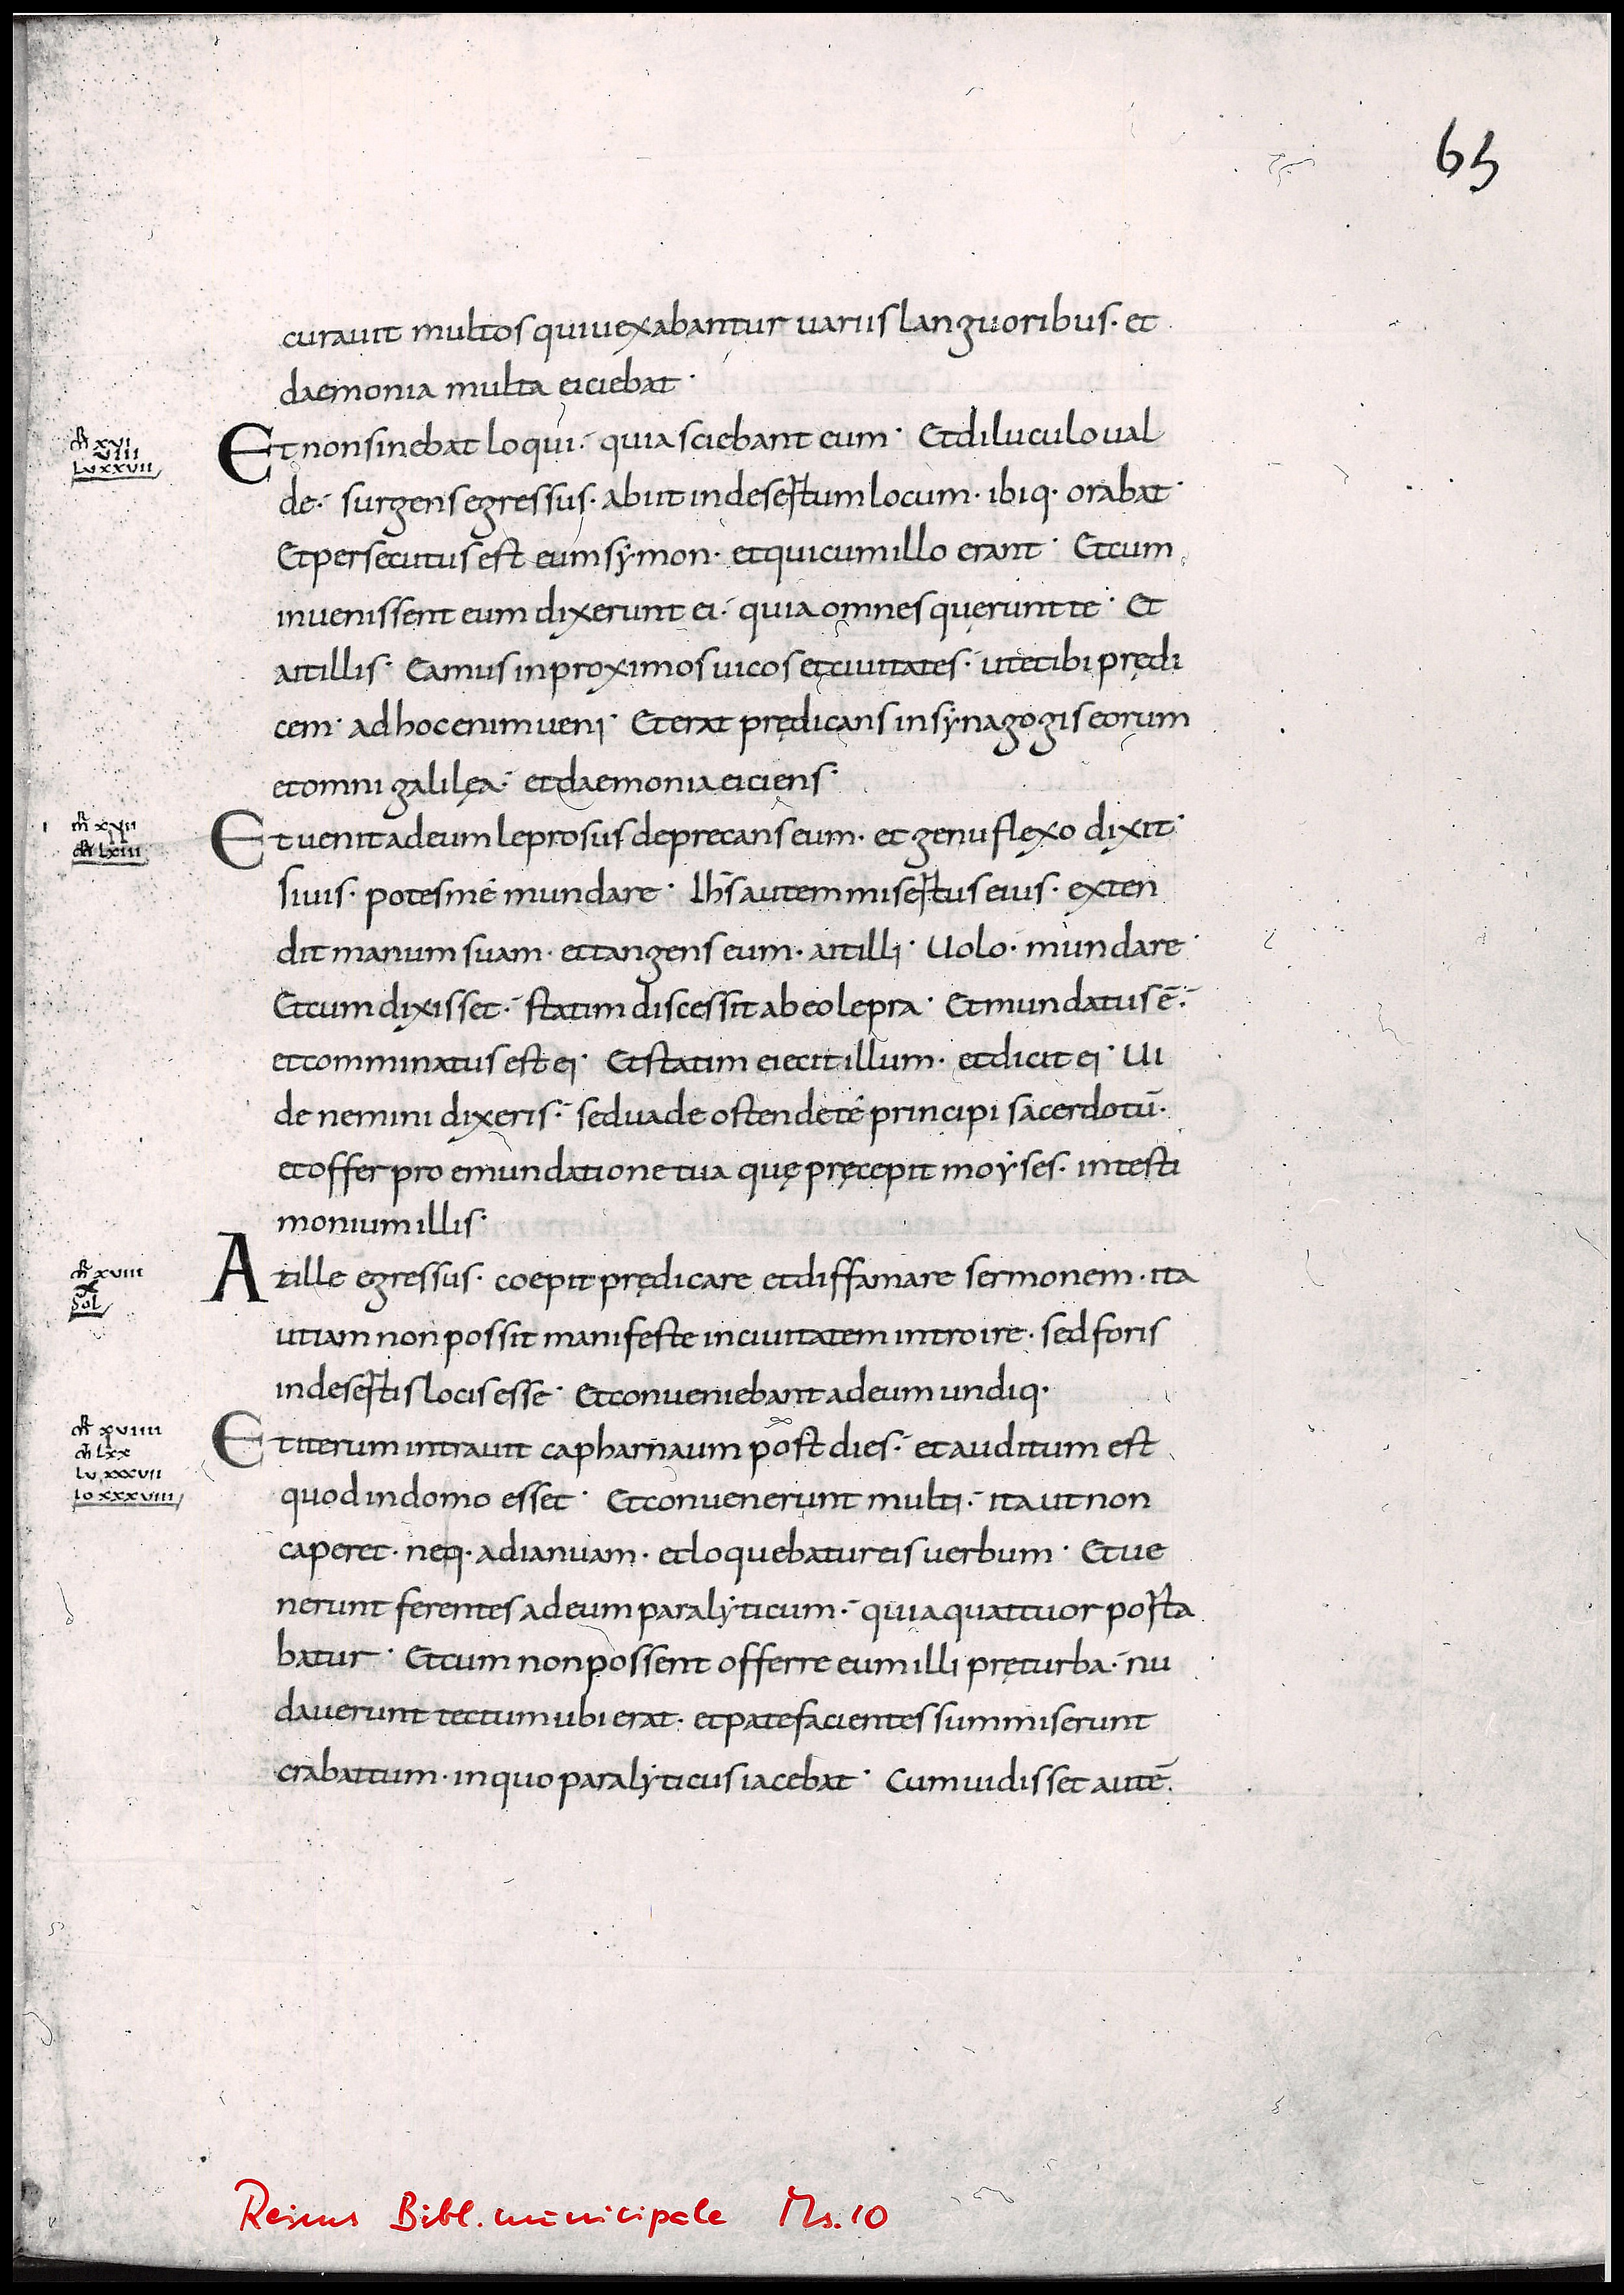 65
curauit multos qui uexabantur uariis languoribus· et
daemonia multa eiciebat·
mr xvi
viii
Lv xxvii
Et non sinebat loqui· quia sciebant eum· Et diluculo ual
de· surgens egressus· abiit in desertum locum· ibiq· orabat·
Et persecutus est eum sẏmon· et qui cum illo erant· Et cum
inuenissent eum dixerunt ei· quia omnes querunt te· Et
ait illis· Eamus in proximos uicos et ciuitates· ut et ibi prędi
cem· ad hoc enim ueni· Et erat prędicans in sẏnagogis eorum
et omni galilęa· et daemonia eiciens·
mr xvii
Et uenit ad eum leprosus deprecans eum· et genu flexo dixit·
si uis· potes me mundare· Ihs̄ autem misertus eius· exten
dit manum suam· et tangens eum· ait illi· Uolo· mundare·
Et cum dixisset· statim discessit ab eo lepra· Et mundatus ē·
et comminatus est ei· Et statim eiecit illum· et dicit ei· Ui
de nemini dixeris· sed uade ostende te principi sacerdotū·
et offer pro emundatione tua quę pręcepit moẏses· in testi
monium illis·
mr xviii
x
Sol
At ille egressus· coepit prędicare et diffamare sermonem· ita
ut iam non possit manifeste in ciuitatem introire· sed foris
in desertis locis esse· Et conueniebant ad eum undiq·
mr xviiii
m lxx
Lv xxxvii
Io xxxviii
Et iterum intrauit capharnaum post dies· et auditum est
quod in domo esset· Et conuenerunt multi· ita ut non
caperet· neq· ad ianuam· et loquebatur eis uerbum· Et ue
nerunt ferentes ad eum paralẏticum· qui a quattuor porta
batur· Et cum non possent offerre eum illi prę turba· nu
dauerunt tectum ubi erat· et patefacientes summiserunt
crabattum· in quo paralẏticus iacebat· Cum uidisset autē
Reims Bibl. municipale Ms. 10